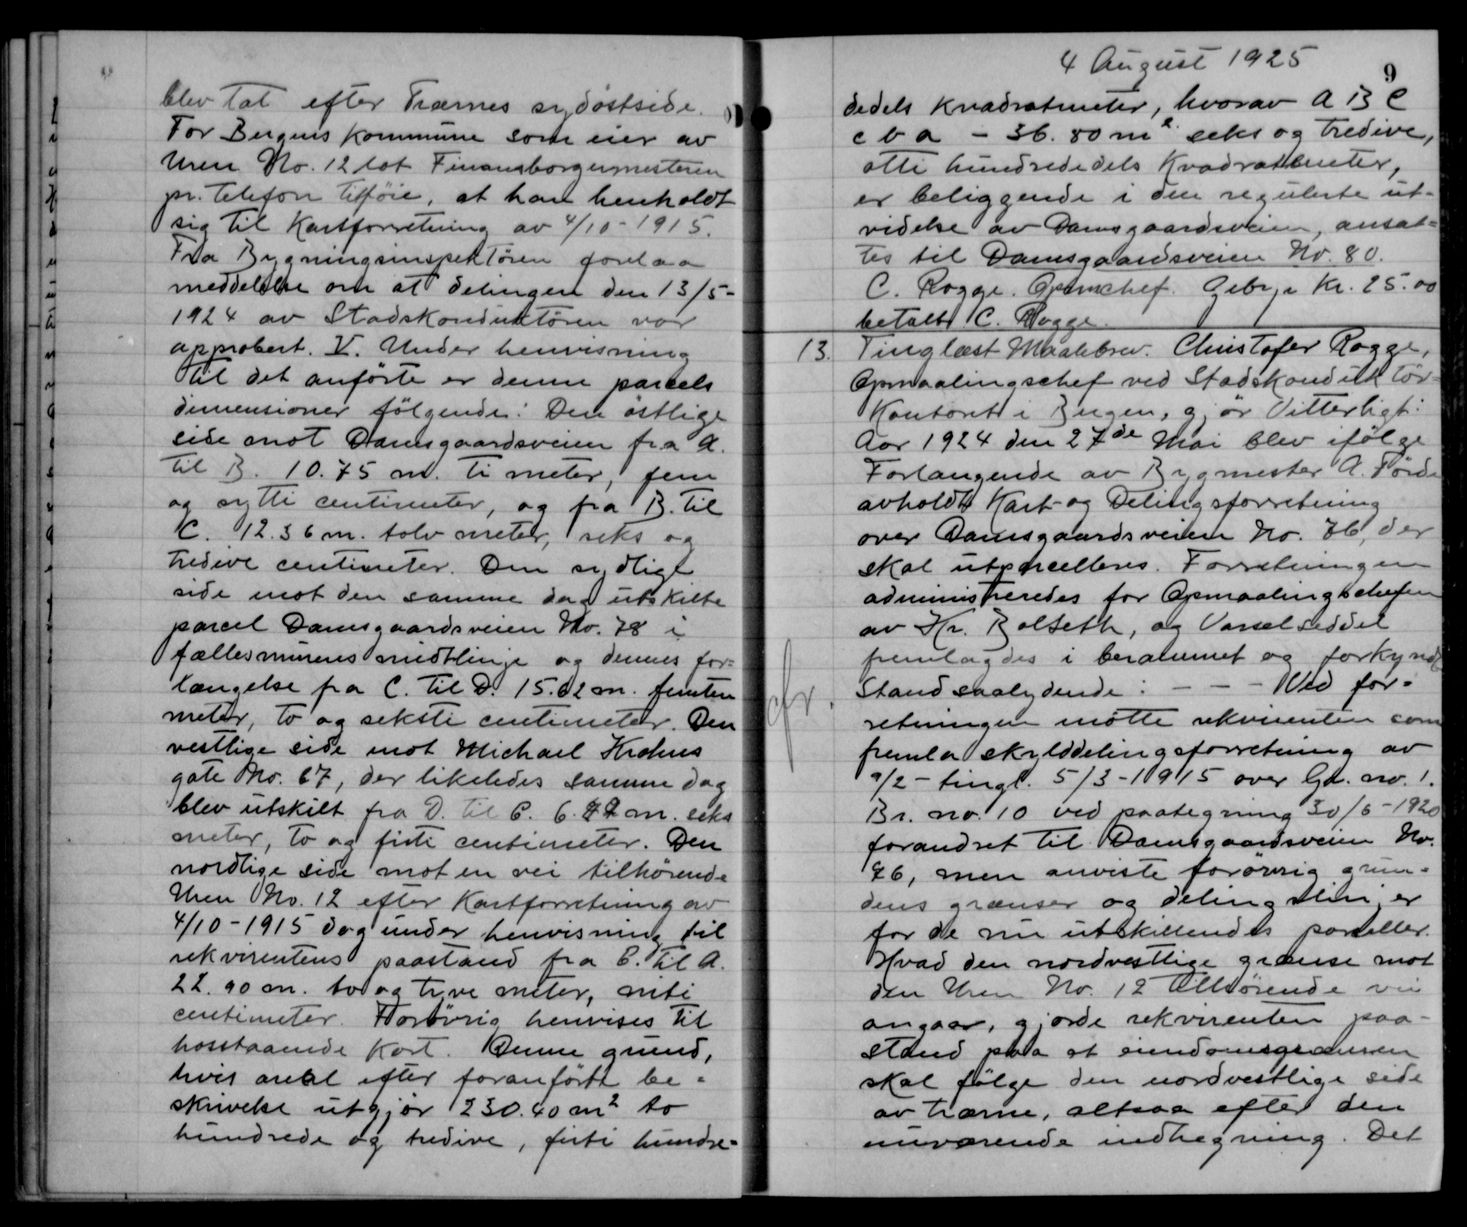 blev tat efter Trærnes sydöstside.
For Bergens Kommune som eier av
Uren No. 12 lot Finansborgermesteren
pr. telefon tilföie, at han henholdt
sig til Kartforretning av 4/10-1915.
Fra Bygningsinspektören forelaa
meddelelse om at delingen den 13/5-
1924 av Stadskonduktören var
approbert. V. Under henvisning
til det anförte er denne parcels
dimensioner fölgende: Den östlige
side mot Damsgaardsveien fra A.
til B. 10.75 m. ti meter, fem
og sytti centimeter, og fra B. til
C. 12.36 m. tolv meter, seks og
tredive centimeter. Den sydlige
side mot den samme dag utskilte
parcel Damsgaardsveien No. 78 i
fællesmurens midtlinje og dennes for=
længelse fra C. til D. 15.62 m. femten
meter, to og seksti centimeter. Den
vestlige side mot Michael Krohns
gate No. 67, der likeledes samme dag
blev utskilt fra D. til E. 6.42 m. seks
meter, to og firti centimeter. Den
nordlige side mot en vei tilhörende
Uren No. 12 efter Kartforretning av
4/10-1915 dog under henvisning til
rekvirentens paastand fra E. til A.
22.90 m. to og tyve meter, niti
centimeter. Forövrig henvises til
hosstaaende Kart. Denne grund,
hvis areal efter foranförte be=
skrivelse utgjör 230.40 m² to
hundrede og tredive, firti hundre=
4 August 1925
9
dedels kvadratmeter, hvorav A B C
c b a - 36.80 m². seks og tredive,
otti hundrededels Kvadratmeter,
er beliggende i den regulerte ut-
videlse av Damsgaardsveien, ansat=
tes til Damsgaardsveien No. 80.
C. Rogge. Opm.chef. Gebyr Kr. 25.00
betalt. C. Rogge.
13. Tinglæst Maalebrev. Christofer Rogge,
Opmaalingschef ved Stadskonduktör=
Kontoret i Bergen, gjör Vitterligt:
Aar 1924 den 27de Mai blev ifölge
Forlangende av Bygmester A. Förde
avholdt Kart- og Delingsforretning
over Damsgaardsveien No. 76, der
skal utparcelleres. Forretningen
administreredes for Opmaalingschefen
av Hr. Bolseth, og Varselseddel
fremlagdes i berammet og forkyndt
Stand saalydende: - - - Ved for=
cfr.
retningen mötte rekvirenten som
fremla skylddelingsforretning av
9/2 - tingl. 5/3-1915 over Ga. no. 1.
Br. no. 10 ved paategning 30/6-1920
forandret til Damsgaardsveien No.
76, men anviste forövrig grun=
dens grænser og delingslinjer
for de nu utskillendes parceller.
Hvad den nordvestlige grænse mot
den Uren No. 12 tilhörende vei
angaar, gjorde rekvirenten paa-
stand paa at eiendomsgrænsen
skal fölge den nordvestlige side
av trærne, altsaa efter den
nuværende indhegning. Det